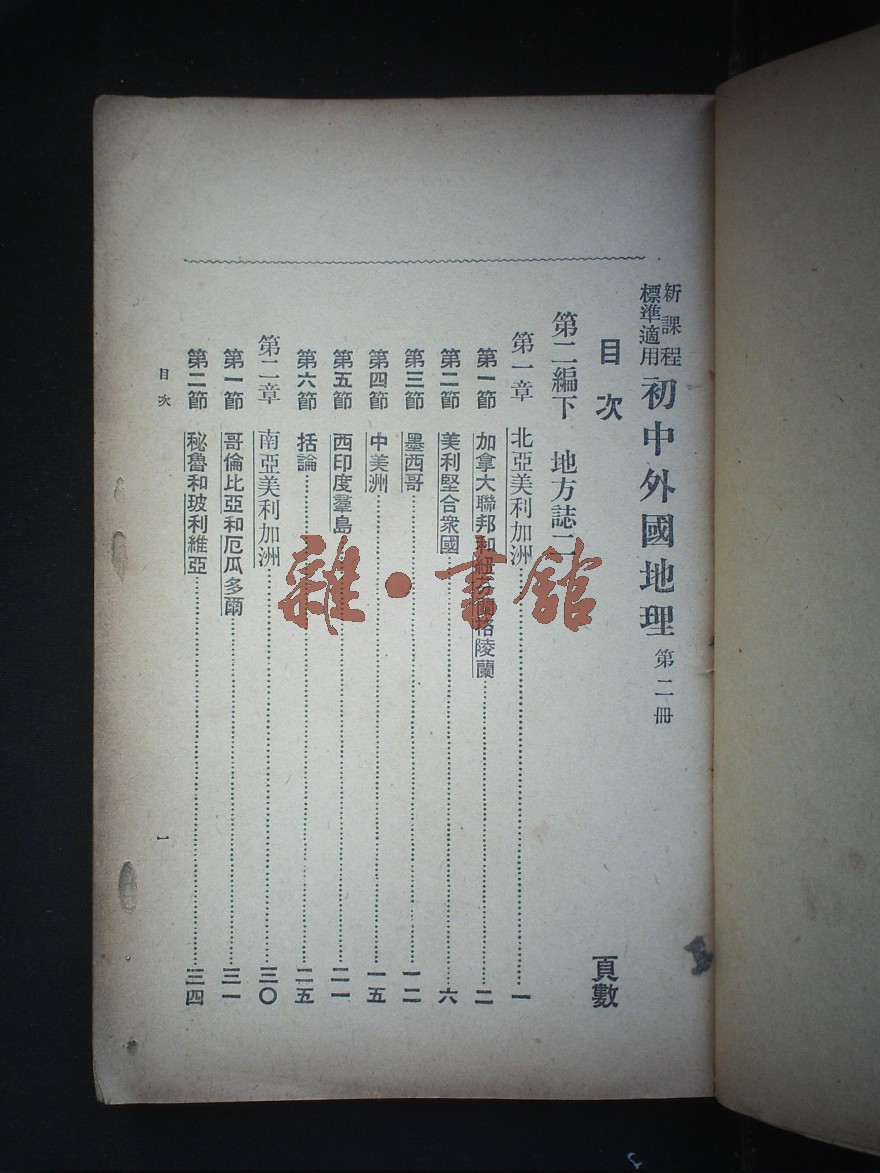 新課程
標準適用
初中外國地理 第二冊
目次
頁數
第二編下 地方誌二
第一章 北亞美利加洲……一
第一節 加拿大聯邦和紐芬蘭格陵蘭……二
第二節 美利堅合衆國……六
第三節 墨西哥……一二
第四節 中美洲……一五
第五節 西印度羣島……二一
第六節 括論……二五
第二章 南亞美利加洲……三〇
第一節 哥倫比亞和厄瓜多爾……三一
第二節 秘魯和玻利維亞……三四
目次
一
雜·書館